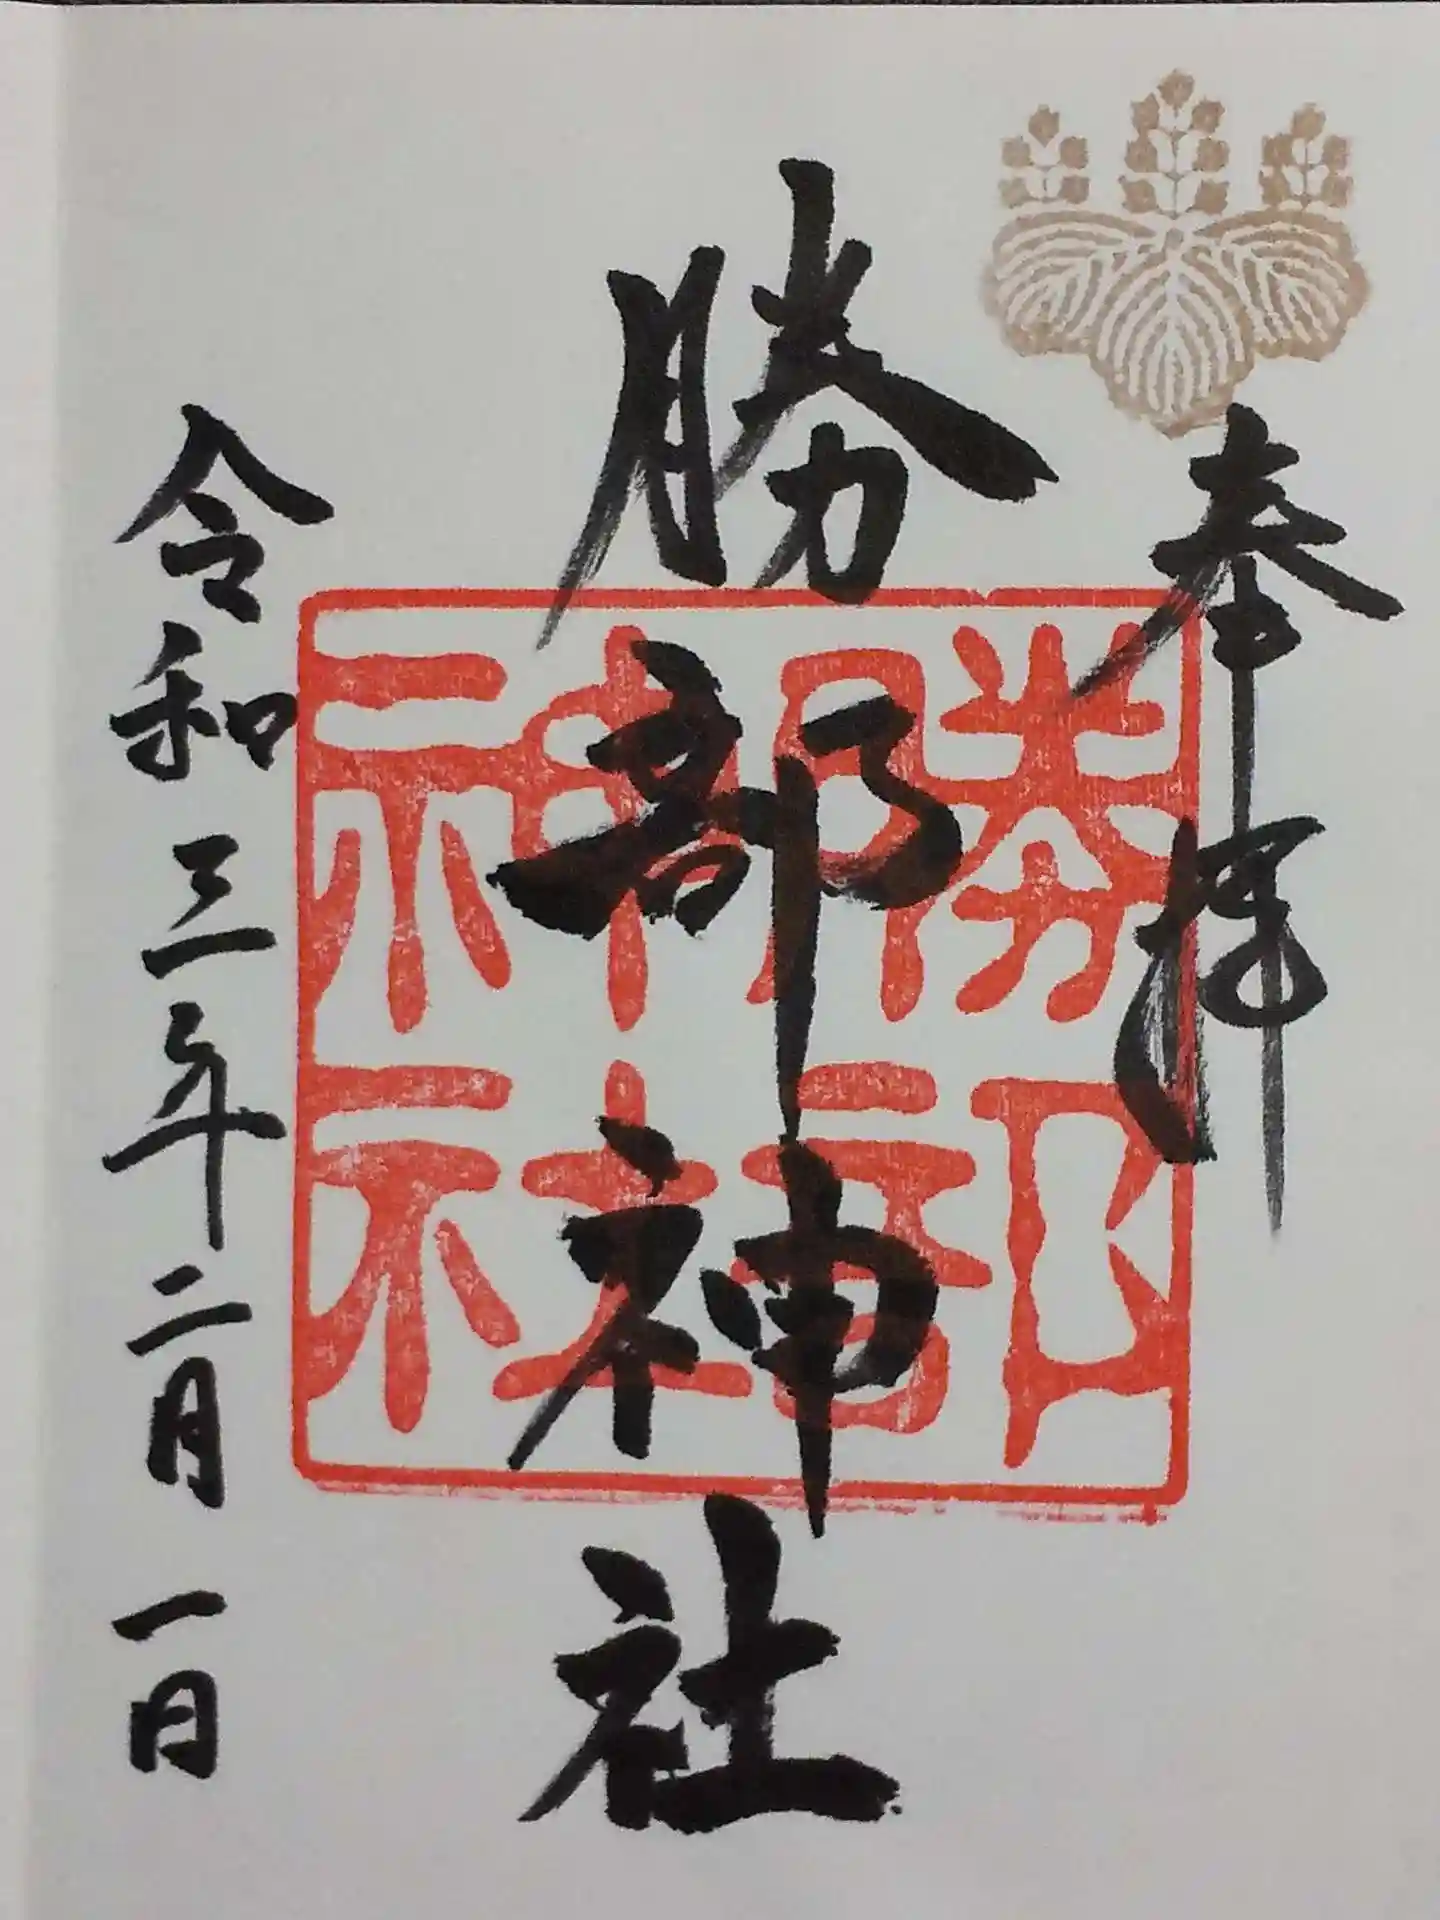 奉拝
勝部神社
勝部
神社
令和三年二月一日